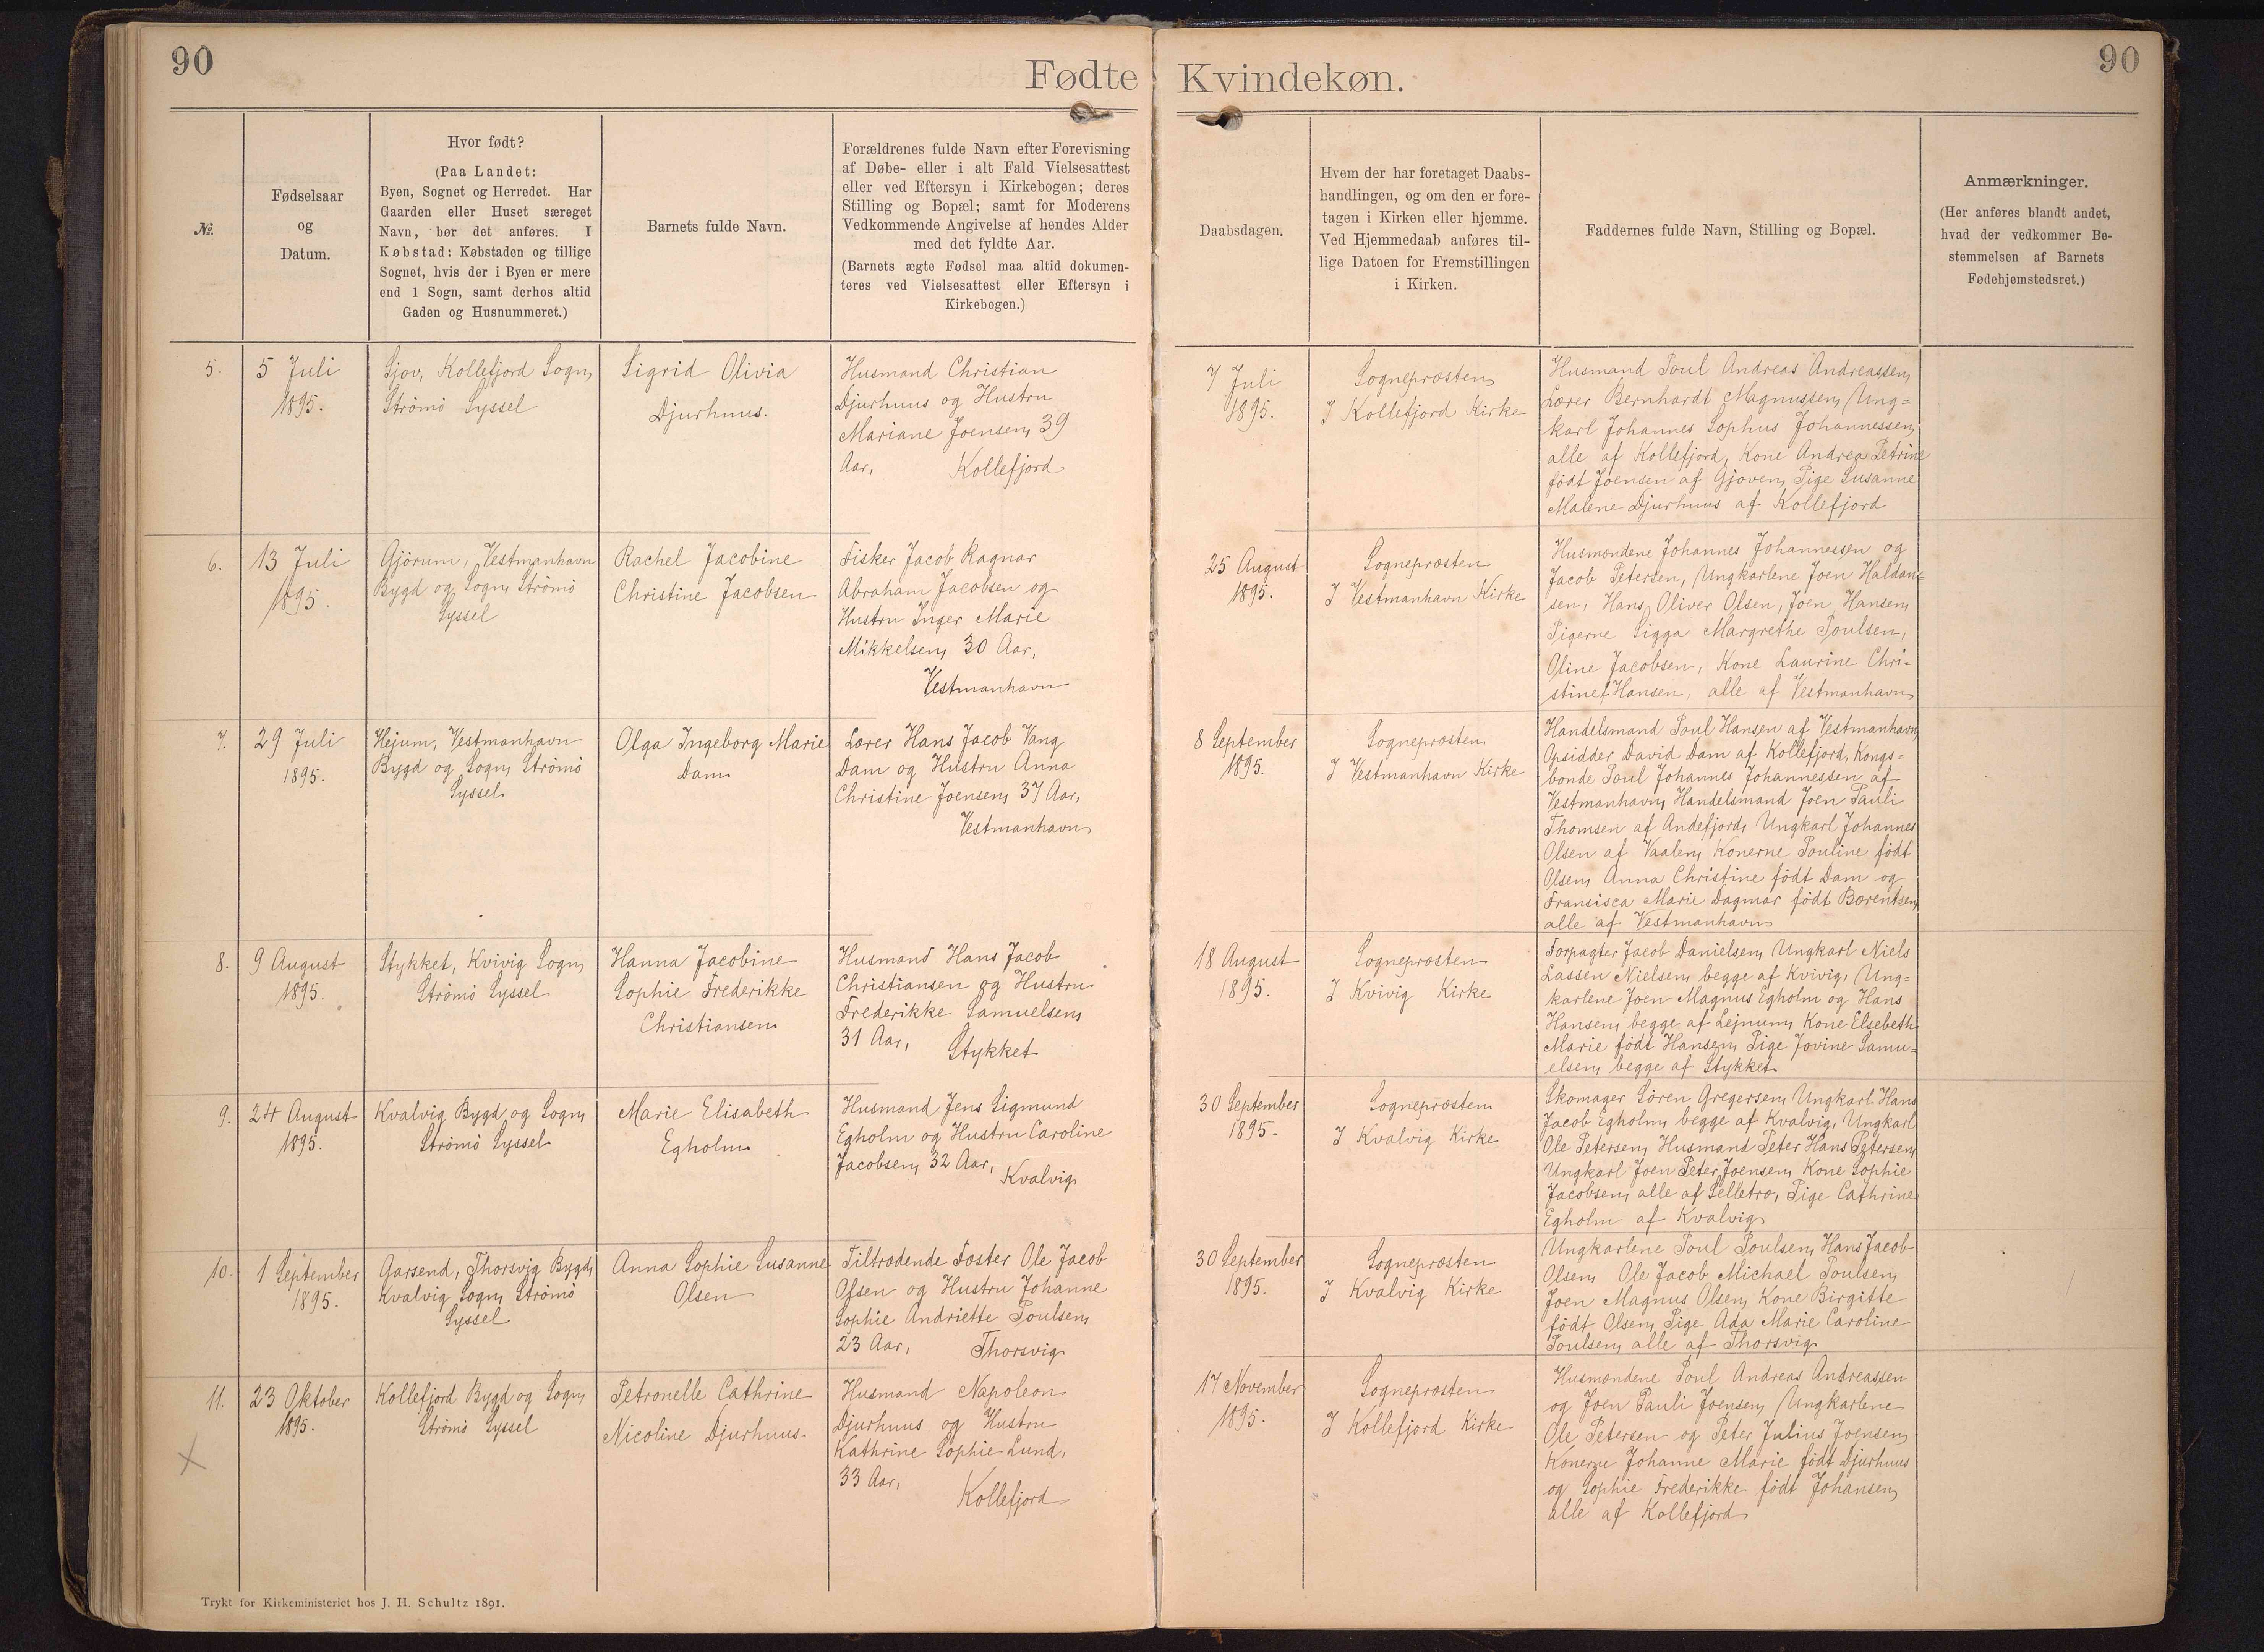 90
Fødte
№.
Fødselsaar
og
Datum.
Hvor født?
(Paa Landet:
Byen, Sognet og Herredet. Har
Gaarden eller Huset særeget
Navn, bør det anføres. I
Købstad: Købstaden og tillige
Sognet, hvis der i Byen er mere
end 1 Sogn, samt derhos altid
Gaden og Husnummeret.)
Barnets fulde Navn.
Forældrenes fulde Navn efter Forevisning
af Døbe- eller i alt Fald Vielsesattest
eller ved Eftersyn i Kirkebogen; deres
Stilling og Bopæl; samt for Moderens
Vedkommende Angivelse af hendes Alder
med det fyldte Aar.
(Barnets ægte Fødsel maa altid dokumen-
teres ved Vielsesattest eller Eftersyn i
Kirkebogen.)
5.
5 Juli
1895.
Gjov, Kollefjord Sogn,
Strömö Syssel
Sigrid Olivia
Djurhuus.
Husmand Christian
Djurhuus og Hustru
Mariane Joensen, 39
Aar, Kollefjord
6.
13 Juli
1895.
Gjörum, Vestmanhavn
Bygd og Sogn, Strömö
Syssel
Rachel Jacobine
Christine Jacobsen
Fisker Jacob Ragnar
Abraham Jacobsen og
Hustru Inger Marie
Mikkelsen, 30 Aar,
Vestmanhavn
7.
29 Juli
1895.
Hejum, Vestmanhavn
Bygd og Sogn, Strömö
Syssel
Olga Ingeborg Marie
Dam
Lærer Hans Jacob Vang
Dam og Hustru Anna
Christine Joensen, 37 Aar,
Vestmanhavn
8.
9 August
1895.
Stykket, Kvivig Sogn,
Strömö Syssel
Hanna Jacobine
Sophie Frederikke
Christiansen
Husmand Hans Jacob
Christiansen og Hustru
Frederikke Samuelsen,
31 Aar, Stykket
9.
24 August
1895.
Kvalvig Bygd og Sogn,
Strömö Syssel
Marie Elisabeth
Egholm
Husmand Jens Sigmund
Egholm og Hustru Caroline
Jacobsen, 32 Aar,
Kvalvig
10.
1 September
1895.
Garsend, Thorsvig Bygd,
Kvalvig Sogn, Strömö
Syssel
Anna Sophie Susanne
Olsen
Tiltrædende Fæster Ole Jacob
Olsen og Hustru Johanne
Sophie Andriette Poulsen,
23 Aar, Thorsvig
11.
23 Oktober
1895.
Kollefjord Bygd og Sogn,
Strömö Syssel
Petronelle Cathrine
Nicoline Djurhuus.
Husmand Napoleon
Djurhuus og Hustru
Kathrine Sophie Lund,
33 Aar,
Kollefjord
X
Trykt for Kirkeministeriet hos J. H. Schultz 1891.
Kvindekøn.
90
Daabsdagen.
Hvem der har foretaget Daabs-
handlingen, og om den er fore-
tagen i Kirken eller hjemme.
Ved Hjemmedaab anføres til-
lige Datoen for Fremstillingen
i Kirken.
Faddernes fulde Navn, Stilling og Bopæl.
Anmærkninger.
(Her anføres blandt andet,
hvad der vedkommer Be-
stemmelsen af Barnets
Fødehjemstedsret.)
7 Juli
1895.
Sognepræsten
I Kollefjord Kirke
Husmand Poul Andreas Andreassen,
Lærer Bernhardt Magnussen, Ung=
karl Johannes Sophus Johannessen,
alle af Kollefjord, Kone Andrea Petrine
født Joensen af Gjoven, Pige Susanne
Malene Djurhuus af Kollefjord
25 August
1895.
Sognepræsten
I Vestmanhavn Kirke
Husmændene Johannes Johannessen og
Jacob Petersen, Ungkarlene Joen Haldan=
sen, Hans Oliver Olsen, Joen Hansen,
Pigerne Sigga Margrethe Poulsen,
Oline Jacobsen, Kone Laurine Chri-
stine f. Hansen, alle af Vestmanhavn
8 September
1895.
Sognepræsten
I Vestmanhavn Kirke
Handelsmand Poul Hansen af Vestmanhavn,
Opsidder David Dam af Kollefjord, Kongs=
bonde Poul Johannes Johannessen af
Vestmanhavn, Handelsmand Joen Pauli
Thomsen af Andefjord, Ungkarl Johannes
Olsen af Vaalen, Konerne Pouline født
Olsen, Anna Christine født Dam og
Fransisca Marie Dagmar født Bærentsen,
alle af Vestmanhavn
18 August
1895.
Sognepræsten
I Kvivig Kirke
Forpagter Jacob Danielsen, Ungkarl Niels
Lassen Nielsen, begge af Kvivig, Ung=
karlene Joen Magnus Egholm og Hans
Hansen, begge af Lejnum, Kone Elsebeth
Marie født Hansen, Pige Jovine Samu=
elsen, begge af Stykket
30 September
1895.
Sognepræsten
I Kvalvig Kirke
Skomager Sören Gregersen, Ungkarl Hans
Jacob Egholm, begge af Kvalvig, Ungkarl
Ole Petersen, Husmand Peter Hans Petersen,
Ungkarl Joen Peter Joensen, Kone Sophie
Jacobsen, alle af Selletræ, Pige Cathrine
Egholm af Kvalvig
30 September
1895.
Sognepræsten
I Kvalvig Kirke
Ungkarlene Poul Poulsen, Hans Jacob
Olsen, Ole Jacob Michael Poulsen,
Joen Magnus Olsen, Kone Birgitte
født Olsen, Pige Ada Marie Caroline
Poulsen, alle af Thorsvig
17 November
1895.
Sognepræsten
I Kollefjord Kirke
Husmændene Poul Andreas Andreassen
og Joen Pauli Joensen, Ungkarlene
Ole Petersen og Peter Julius Joensen,
Konerne Johanne Marie født Djurhuus
og Sophie Frederikke født Johansen,
alle af Kollefjord